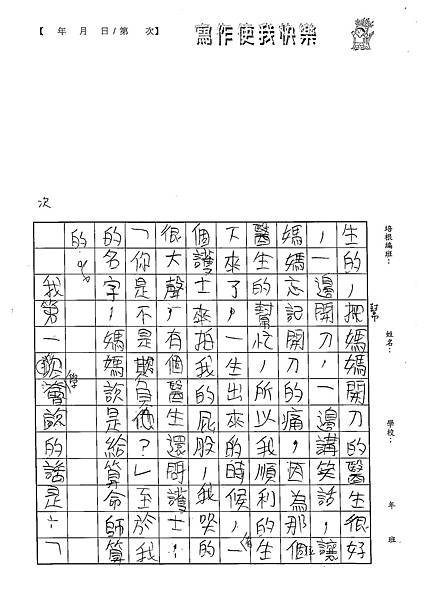 【 年 月 日/第 次】
寫作使我快樂
培根編班：
姓名：
學校：
年 班
生的，把媽開刀的醫生很好
幫
，一邊開刀，一邊講笑話，讓
媽媽忘記開刀的痛，因為那個
位
醫生的幫忙，所以我順利的生
下來了，生出來的時候，一
個護士來拍我的屁股，我哭的
很大聲，有個醫生還罵護士：
「你是不是欺負他？」至於我
的名字，媽媽說是給算命師算
的。
我第一
次
學
說的話是：「